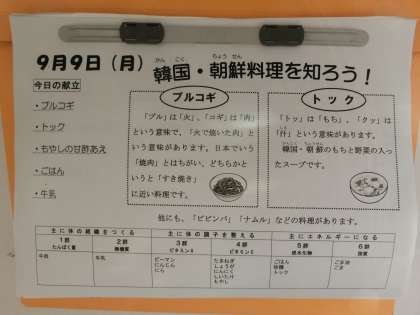 9月9日（月）韓国・朝鮮料理を知ろう！
かん こく ちょう せん
今日の献立
・プルコギ
・トック
・もやしの甘酢あえ
・ごはん
・牛乳
プルコギ
「プル」は「火」、「コギ」は「肉」
という意味で、「火で焼いた肉」と
いう意味があります。日本でいう
「焼肉」とはちがい、どちらかと
いうと「すき焼き」
に近い料理です。
トック
「トッ」は「もち」、「クッ」は
「汁」という意味があります。
韓国・朝鮮のもちと野菜の入っ
たスープです。
他にも、「ビビンバ」「ナムル」などの料理があります。
主に体の組織をつくる 主に体の調子を整える 主にエネルギーになる
1群 2群 3群 4群 5群 6群
たんぱく質 無機質 ビタミンA ビタミンC 炭水化物 脂質
牛肉 牛乳 ピーマン たまねぎ ごはん ごま油
にんじん しょうが 砂糖 ごま
にら にんにく トック
しいたけ
もやし